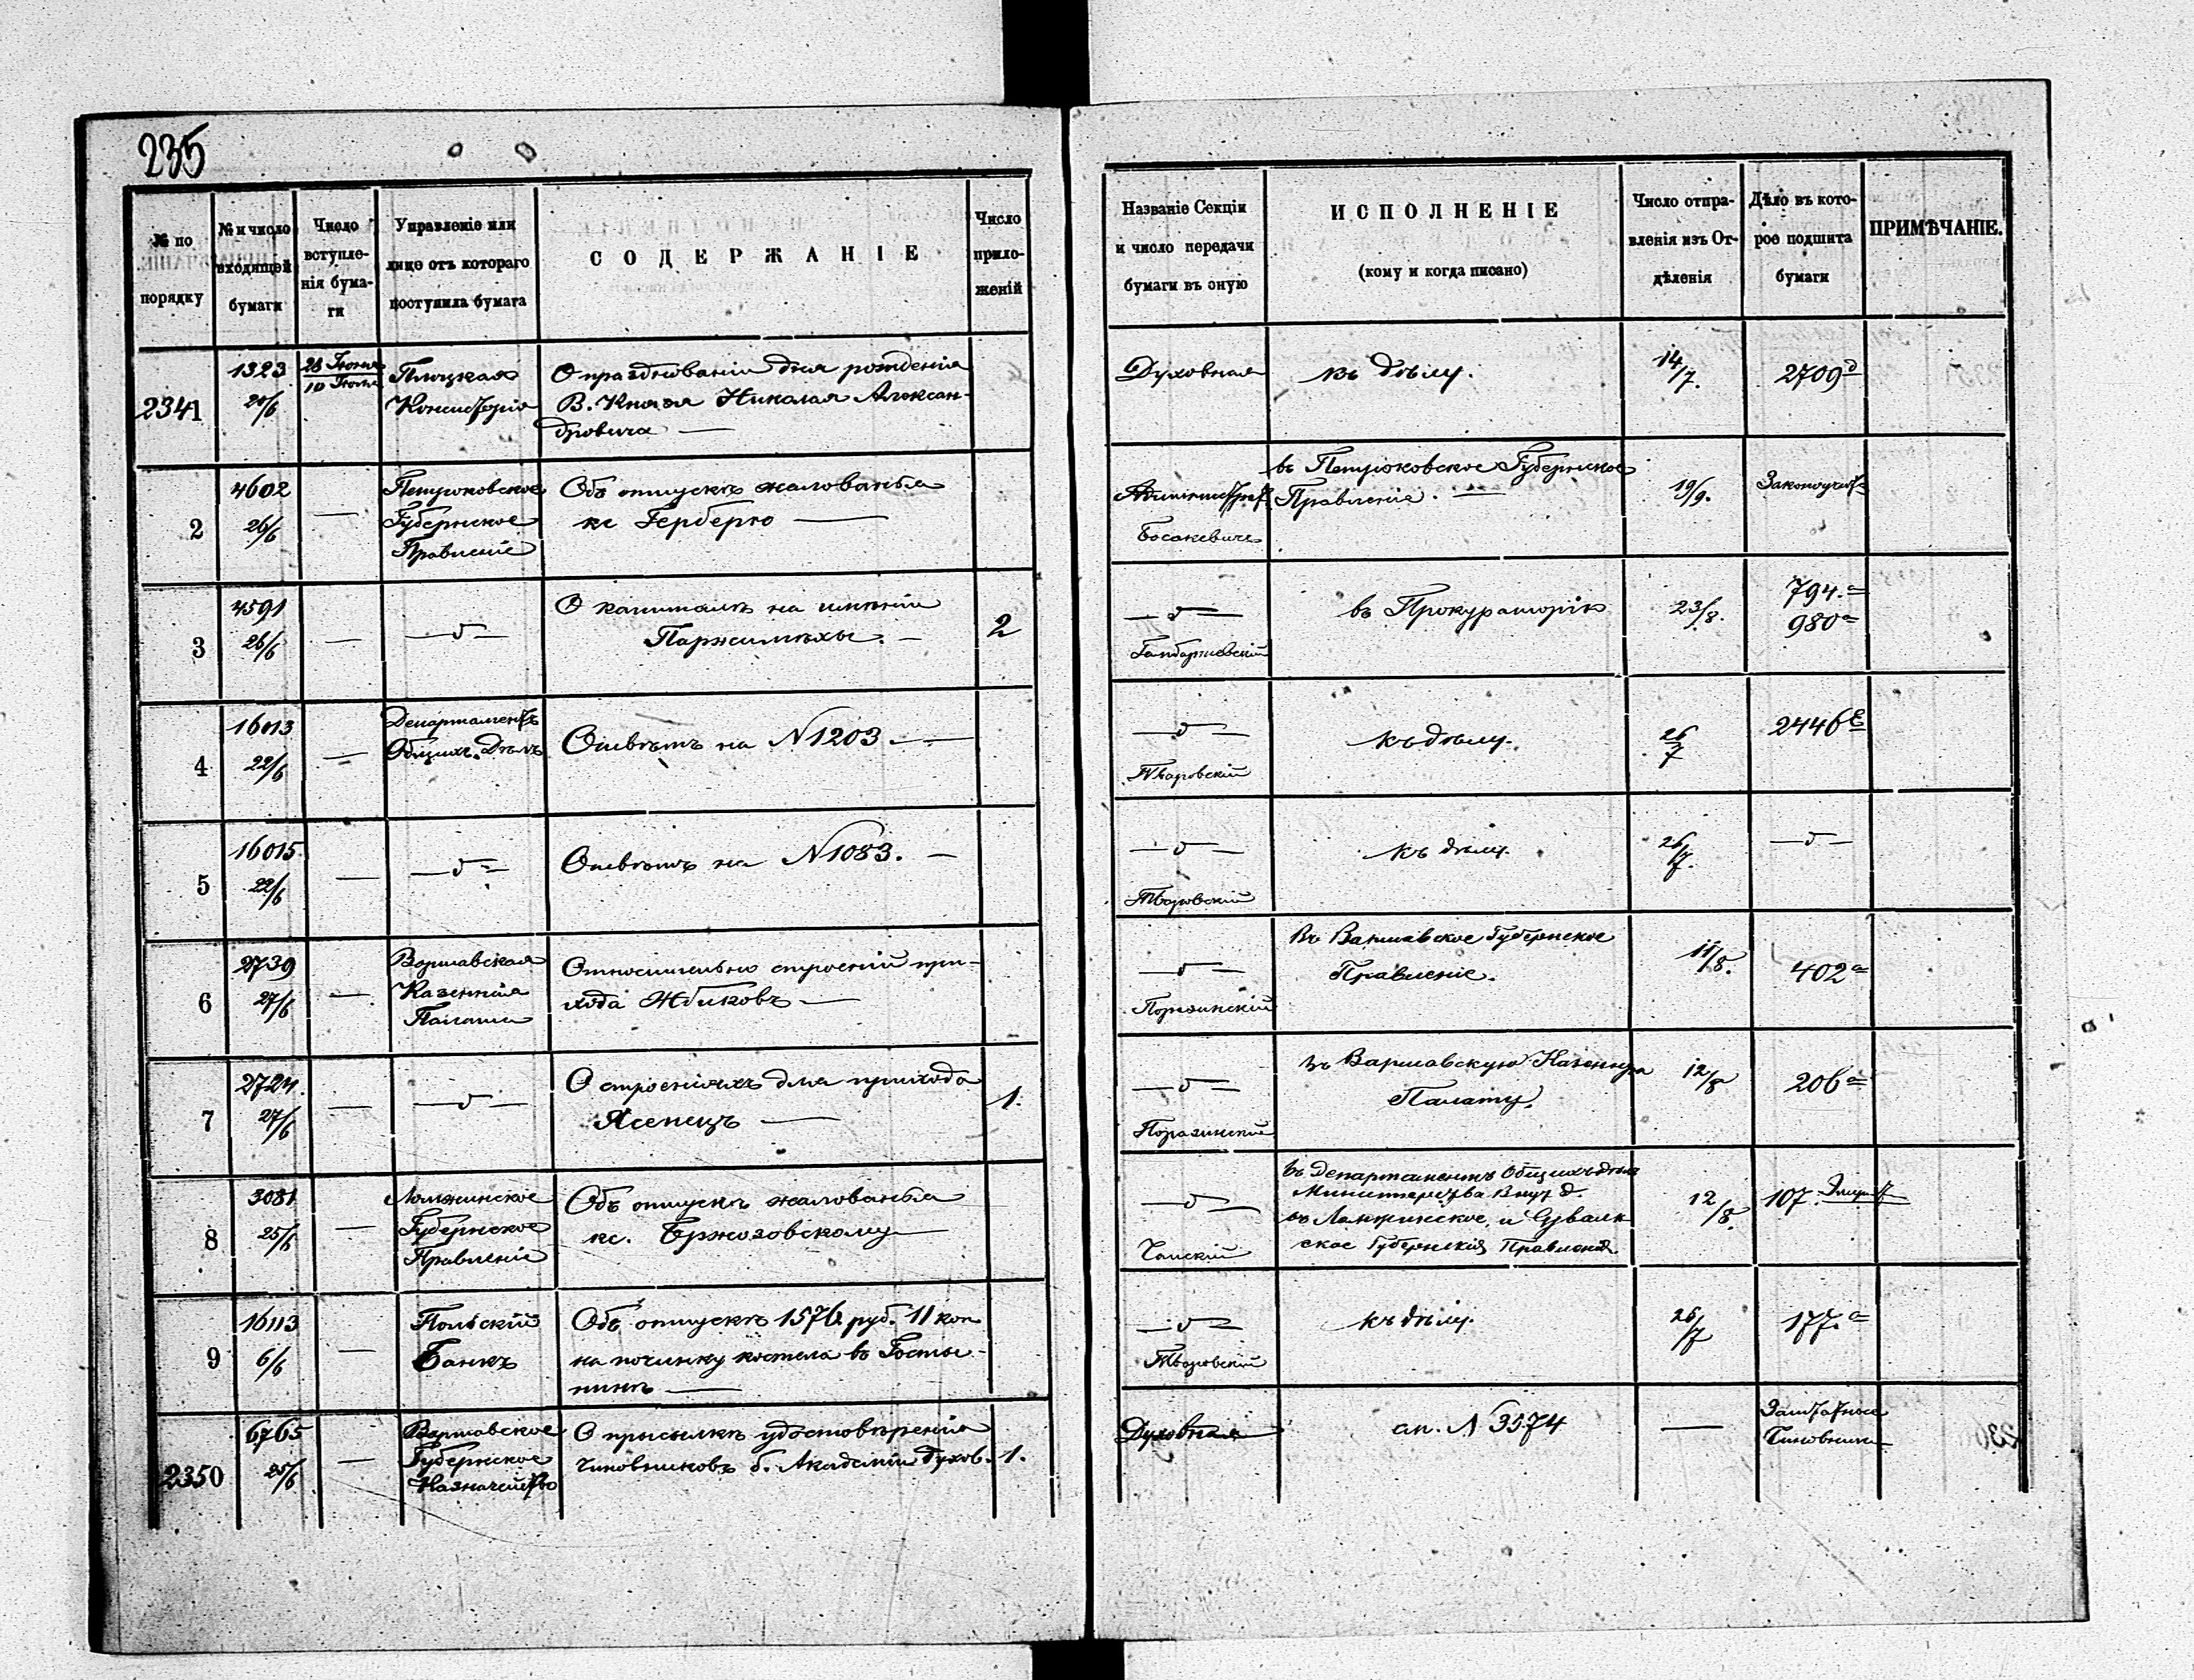 235
№ по
порядку
№ и число
входящей
бумаги
Число
вступле-
нія бума-
ги
Управленіе или
лице отъ котораго
поступила бумага
СОДЕРЖАНІЕ
Число
прило-
женій
Названіе Секціи
и число передачи
бумаги въ оную
ИСПОЛНЕНІЕ
(кому и когда писано)
Число отпра-
вленія изъ От-
дѣленія
Дѣло въ кото-
рое подшита
бумаги
ПРИМѢЧАНІЕ.
2341
1323
20/6
28 Іюня
10 Іюля
Плоцкая
Консисторія
О праздновании дня рожденія
В. Князя Николая Алексан-
дровича —
Духовная
къ дѣлу.
14/7.
2709 д
2
4602
26/6
—
Петроковское
Губернское
Правленіе
Объ отпускѣ жалованья
кс Герберго —
Босакевичъ
въ Петроковское Губернское
Правленіе. —
19/9.
3
4591
26/6
—
О капиталѣ на имѣніи
2
въ Прокураторію
23/8.
794. а
980 а
4
16013
22/6
—
Департаментъ
Общихъ Дѣлъ
Отвѣтъ на N 1203 —
Тваровскій
къ дѣлу.
26/7
2446 Е
5
16015
22/6
—
Отвѣтъ на N 1083. —
Тваровскій
къ дѣлу.
26/7.
6
2739
27/6
—
Варшавская
Казенная
Палата
Относительно строеній при-
хода Жбиковъ —
Поразинскій
Въ Варшавское Губернское
Правленіе.
11/8.
402 а
7
2724.
27/6
—
О строеніяхъ для прихода
Ясенецъ —
1.
Поразинскій
въ Варшавскую Казенную
Палату.
12/8
206 а
8
3081
25/6
—
Ломжинское
Губернское
Правленіе
Объ отпускѣ жалованья
кс. Бржозовскому —
въ Департаментъ Общихъ дѣлъ
Министерства Внут д.
въ Ломжинское и Сувалк
ское Губернскія Правленія.
12/8.
107
9
16113
6/6
—
Польскій
Банкъ
Объ отпускѣ 1576 руб. 11 коп
на починку костела въ Госты-
нинѣ —
Тваровскій
къ дѣлу.
26/7
177. а
2350
6765
25/6
—
Варшавское
Губернское
Казначейство
О присылкѣ удостовѣренія
чиновниковъ б. Академіи Духов.
1.
Духовная
сп. N 3574
—
Заштатные
Чиновники